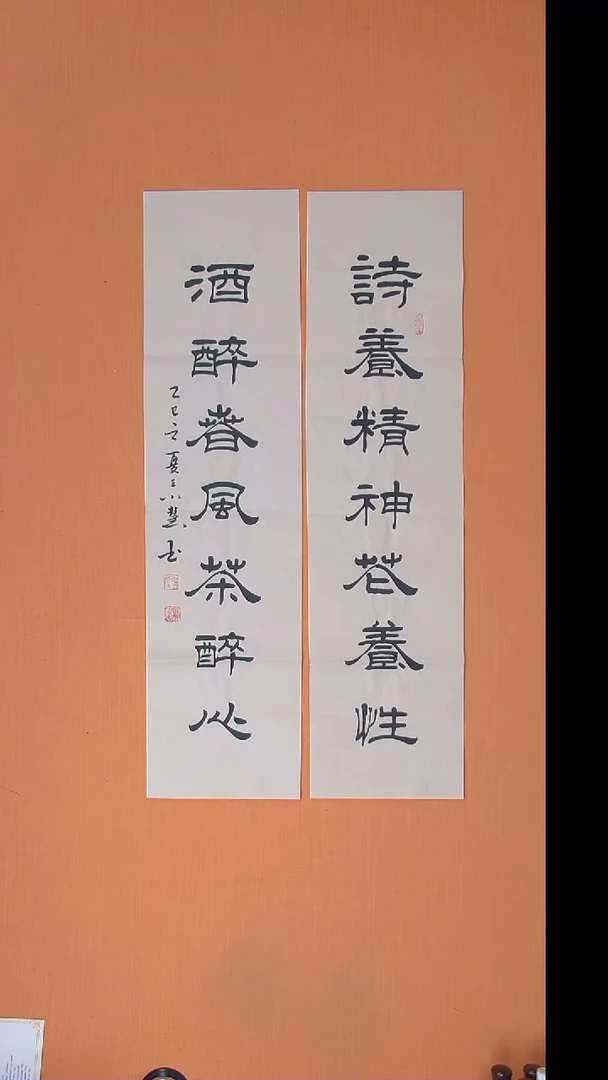 詩養精神花養性
酒醉春風茶醉心
乙巳之夏王小慧书